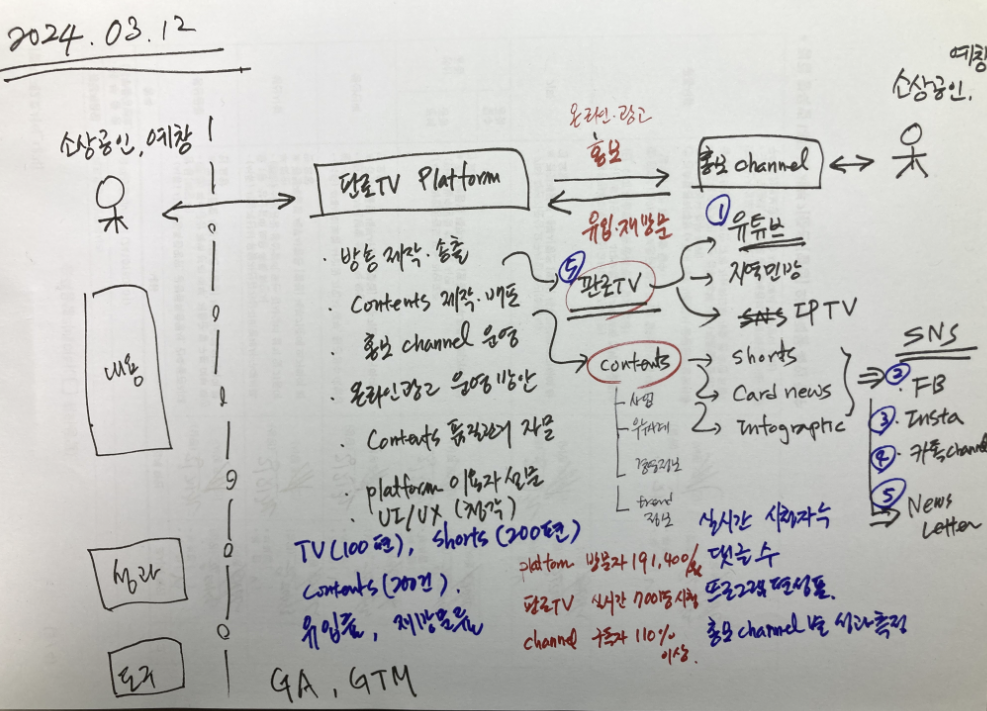 2024.03.12
예창
소상공인.
소상공인, 예창
온라인·광고
홍보
판로TV Platform
홍보 channel
유입·재방문
① 유튜브
· 방송 제작·송출
⑤ 판로TV
지역민방
· Contents 제작·배포
SNS IPTV
· 홍보 channel 운영
SNS
내용
contents
shorts
② · FB
· 온라인광고 운영방안
사업
Card news
③ · Insta
· Contents 품질관리 자문
우수사례
Infographic
④ · 카톡channel
정보
· platform 이용자 설문
UI/UX (청각)
trend
정보
⑤ · News
Letter
성과
TV(100편), shorts (200편)
실시간 시청자수
contents(200건).
platform 방문자 191,400%
댓글 수
유입률, 재방문율
판로TV 실시간 700명 시청
프로그램 편성표.
channel 구독자 110%
이상.
홍보channel 별 성과측정
도구
GA, GTM